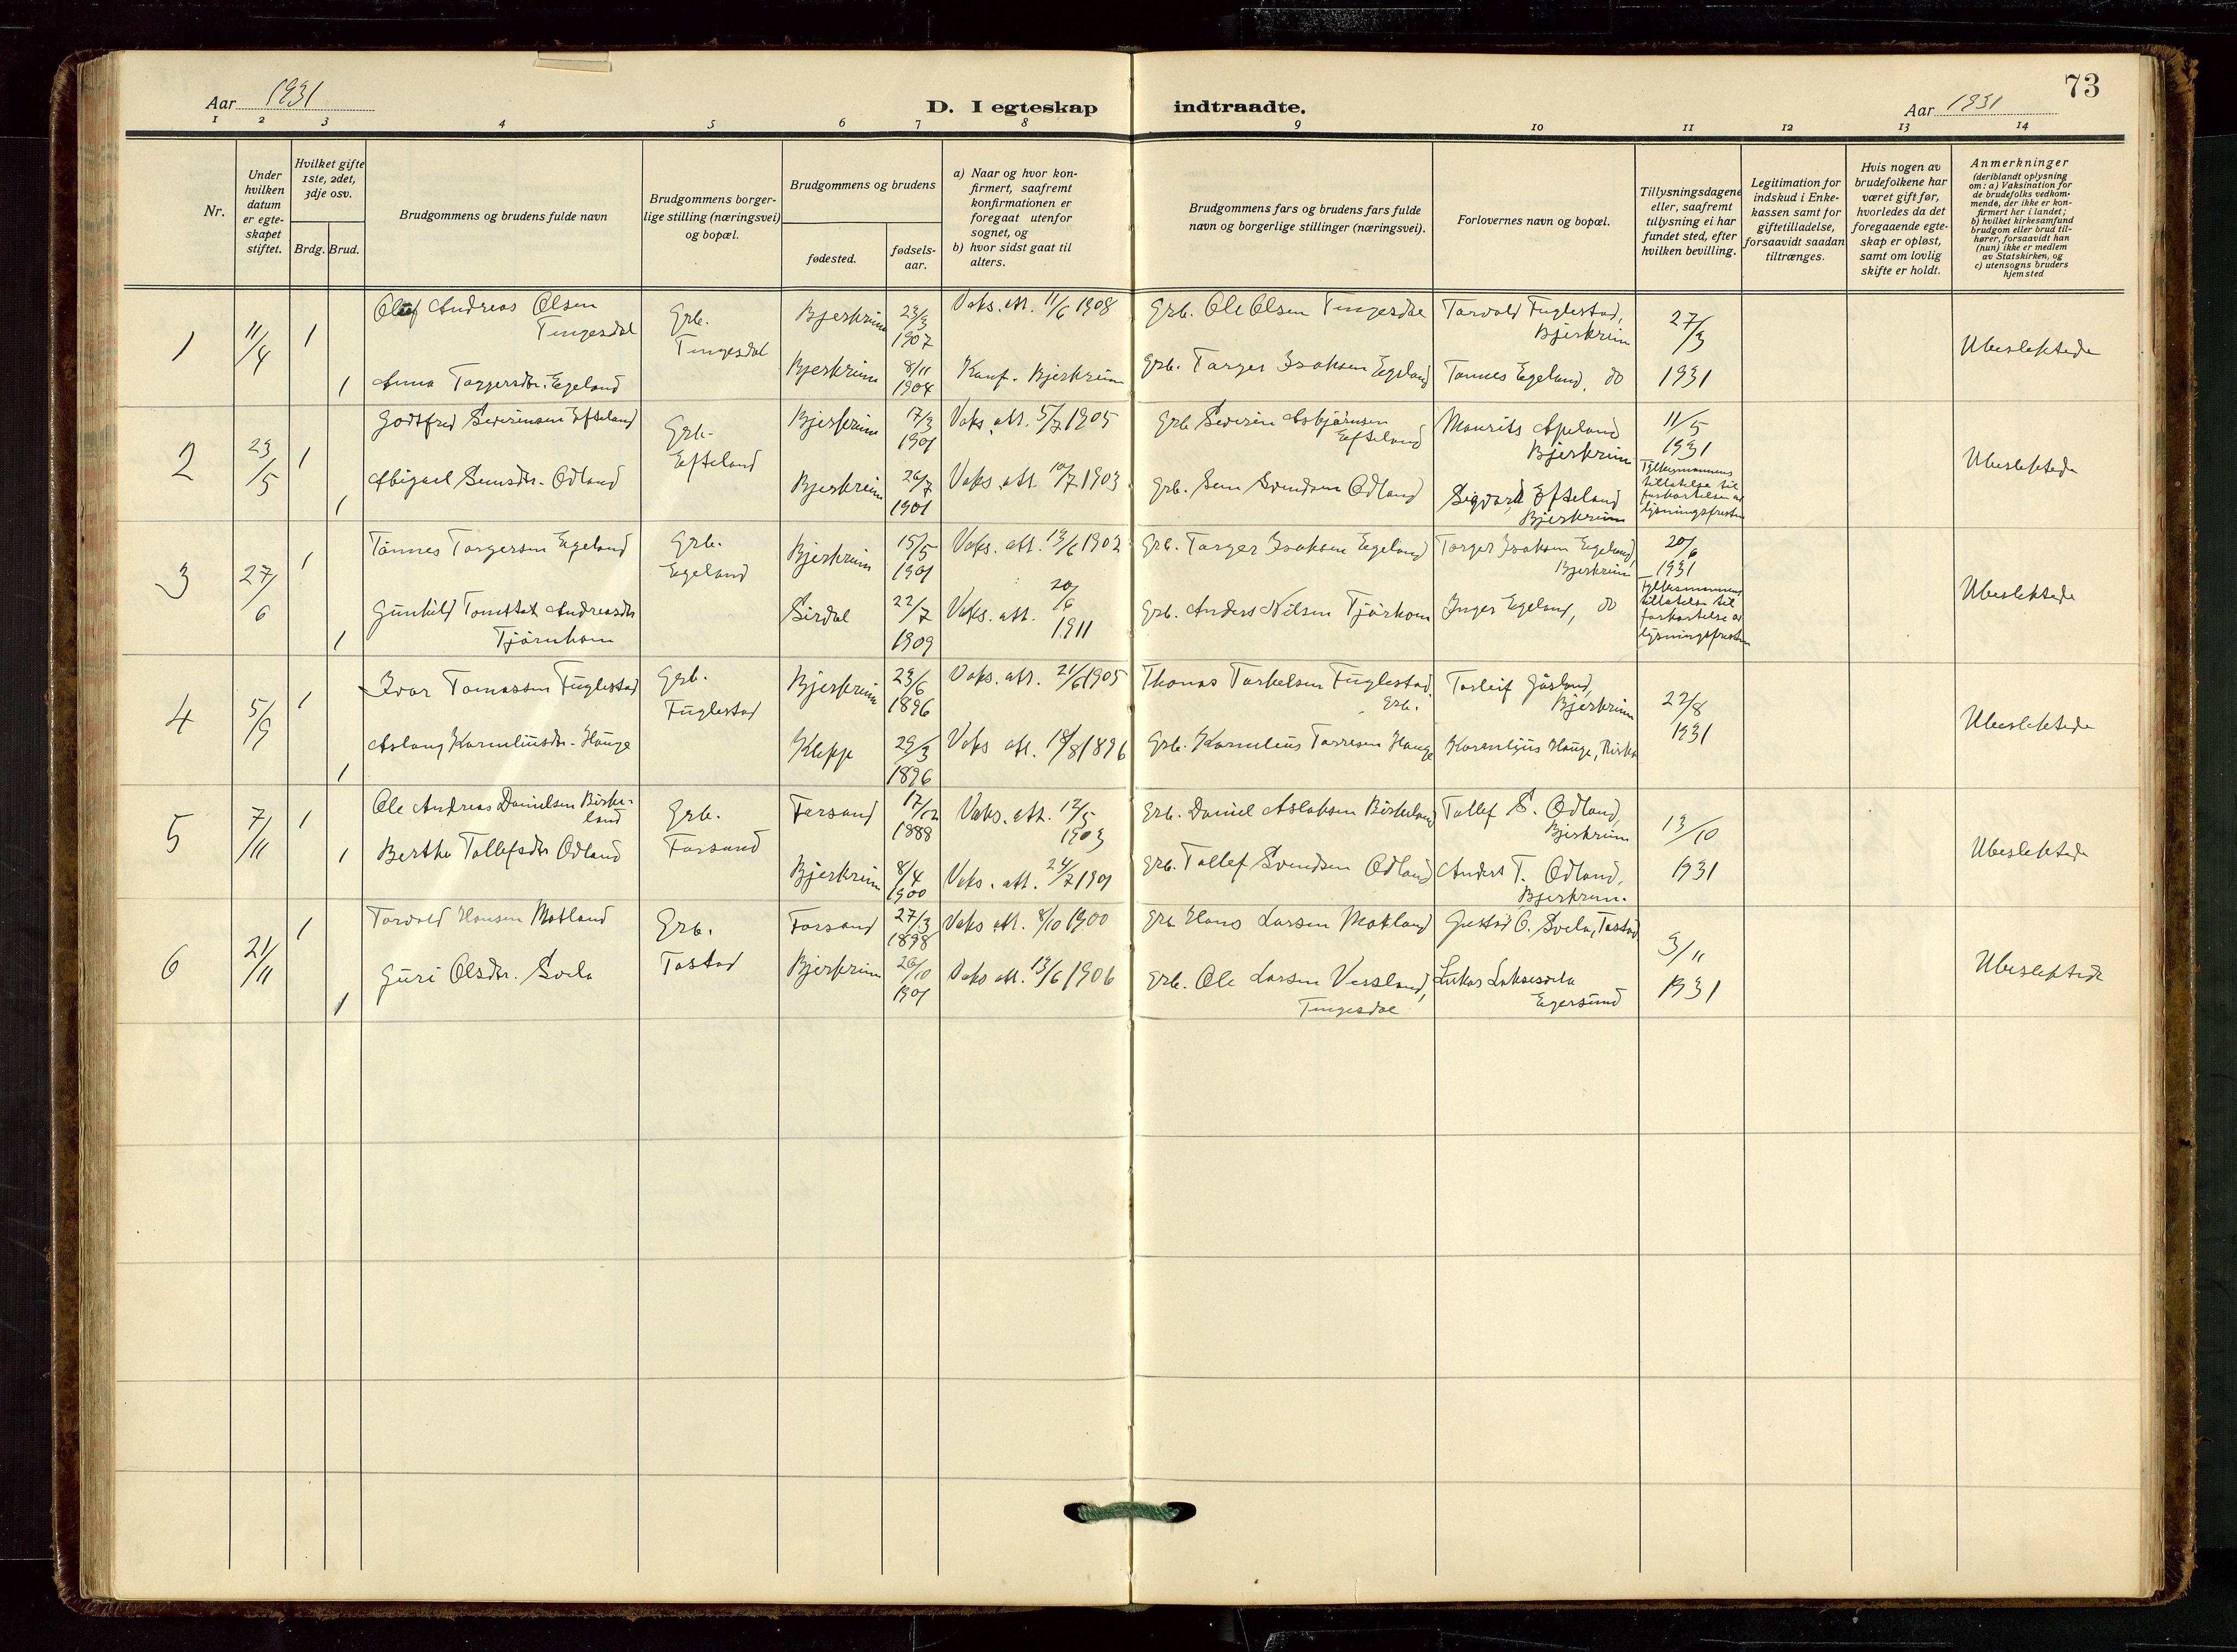 73
Aar 1931
D. I egteskap indtraadte.
Aar 1931
1 2 3 4 5 6 7 8 9 10 11 12 13 14
Nr.
Under
hvilken
datum
er egte-
skapet
stiftet.
Hvilket gifte
1ste, 2det,
3dje osv.
Brdg. Brud.
Brudgommens og brudens fulde navn
Brudgommens borger-
lige stilling (næringsvei)
og bopæl.
Brudgommens og brudens
fødested.
fødsels-
aar.
a) Naar og hvor kon-
firmert, saafremt
konfirmationen er
foregaat utenfor
sognet, og
b) hvor sidst gaat til
alters.
Brudgommens fars og brudens fars fulde
navn og borgerlige stillinger (næringsvei).
Forlovernes navn og bopæl.
Tillysningsdagene
eller, saafremt
tillysning ei har
fundet sted, efter
hvilken bevilling.
Legitimation for
indskud i Enke-
kassen samt for
giftetilladelse,
forsaavidt saadan
tiltrænges.
Hvis nogen av
brudefolkene har
været gift før,
hvorledes da det
foregaaende egte-
skap er opløst,
samt om lovlig
skifte er holdt.
Anmerkninger
(deriblandt oplysning
om: a) Vaksination for
de brudefolks vedkom-
mende, der ikke er kon-
firmert her i landet;
b) hvilket kirkesamfund
brudgom eller brud til-
hører, forsaavidt han
(hun) ikke er medlem
av Statskirken, og
c) utensogns bruders
hjemsted
1
11/4
1
1
Olaf Andreas Olsen
Tengesdal
Anna Torgersdtr. Egeland
Grb.
Tengesdal
Bjerkreim
Bjerkreim
23/3
1907
8/11
1904
Vaks. att. 11/6 1908
Konf. Bjerkreim
Grb. Ole Olsen Tengesdal
Grb. Torger Isaksen Egeland
Torvald Fuglestad,
Bjerkreim
Tønnes Egeland, do
27/3
1931
Ubeslektede
2
23/5
1
1
Godtfred Severinsen Efteland
Abigael Semsdtr. Odland
Grb.
Efteland
Bjerkreim
Bjerkreim
17/3
1901
26/7
1901
Vaks. att. 5/7 1905
Vaks. att. 10/7 1903
Grb. Severin Asbjørnsen
Efteland
Grb. Sem Svendsen Odland
Maurits Apeland
Bjerkreim
Sigvard Efteland
Bjerkreim
11/5
1931
Fylkesmannens
tillatelse til
forkortelse av
lysningsfristen
Ubeslektede
3
27/6
1
1
Tønnes Torgersen Egeland
Gunhild Tomette Andreasdtr
Tjørnhom
Grb.
Egeland
Bjerkreim
Sirdal
15/5
1901
22/7
1909
Vaks. att. 13/6 1902
Vaks. att. 20/6 1911
Grb. Torger Isaksen Egeland
Grb. Anders Nilsen Tjørhom
Torger Isaksen Egeland,
Bjerkreim
Inger Egeland, do
20/6
1931
Fylkesmannens
tillatelse til
forkortelse av
lysningsfristen
Ubeslektede
4
5/9
1
1
Ivar Tomassen Fuglestad
Aslaug Korneliusdtr. Hauge
Grb.
Fuglestad
Bjerkreim
Klepp
23/6
1896
29/3
1896
Vaks. att. 21/6 1905
Vaks att. 18/8 1896
Thomas Torkelsen Fuglestad
Grb.
Grb. Kornelius Torresen Hauge
Torleif Gåsland,
Bjerkreim
Kornelius Hauge,
22/8
1931
Ubeslektede
5
7/11
1
1
Ole Andreas Danielsen Birke-
land
Berthe Tollefsdtr Odland
Grb.
Forsand
Forsand
Bjerkreim
17/12
1888
8/4
1900
Vaks. att. 12/5
1903
Vaks. att. 24/7 1901
Grb. Daniel Aslaksen Birkeland
Grb. Tollef Svendsen Odland
Tollef S. Odland,
Bjerkreim
Anders T. Odland,
Bjerkreim.
13/10
1931
Ubeslektede
6
21/11
1
1
Torvald Hansen Motland
Guri Olsdtr. Svela
Grb.
Tastad
Forsand
Bjerkreim
27/3
1898
26/10
1901
Vaks att. 8/10 1900
Vaks att. 13/6 1906
Grb Hans Larsen Motland
Grb. Ole Larsen Versland,
Tengesdal
Gustad O. Svela, Tastad
Lukas Laksesvela
Egersund
3/11
1931
Ubeslektede